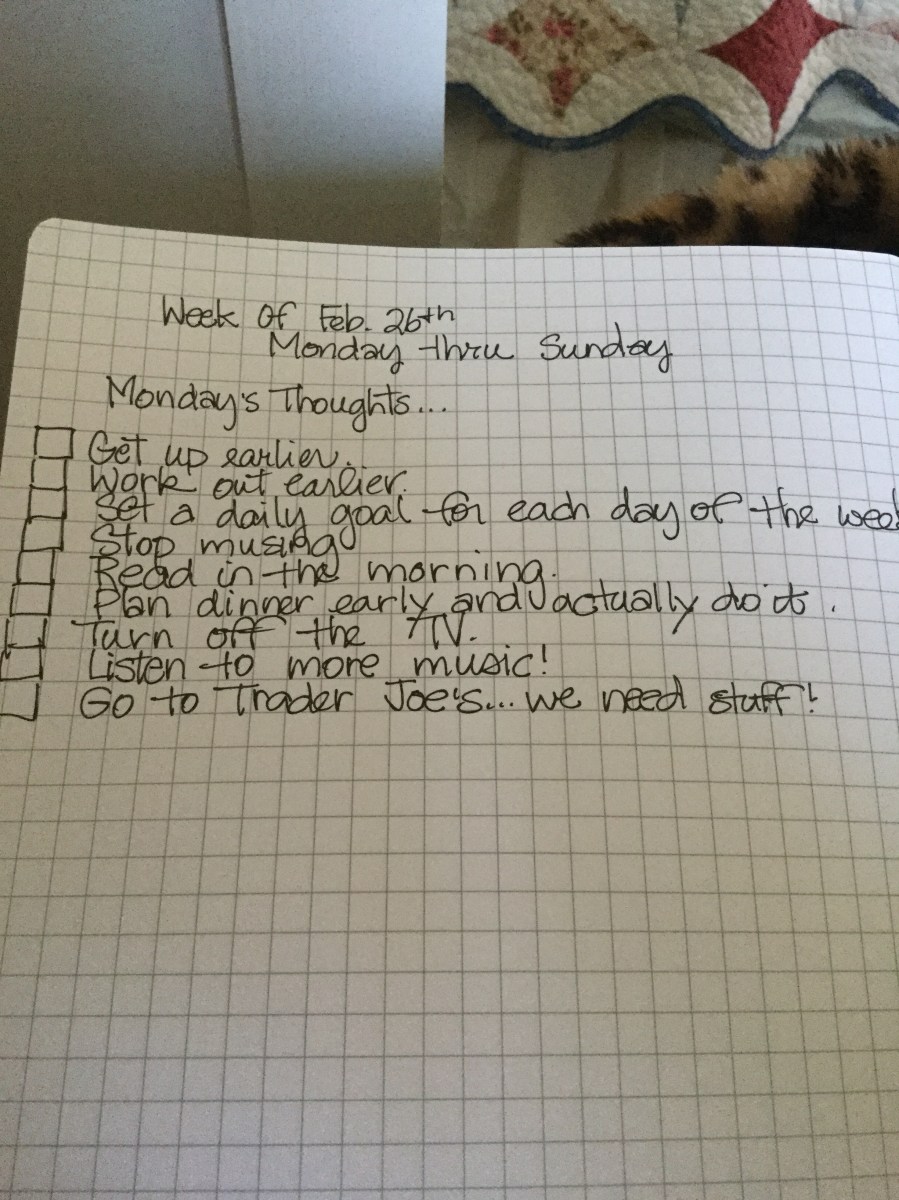 Week Of Feb. 26th
Monday thru Sunday
Monday's Thoughts...
Get up earlier.
Work out earlier.
Set a daily goal for each day of the week
Stop musing
Read in the morning.
Plan dinner early and actually do it.
Turn off the TV.
Listen to more music!
Go to Trader Joe's... we need stuff!